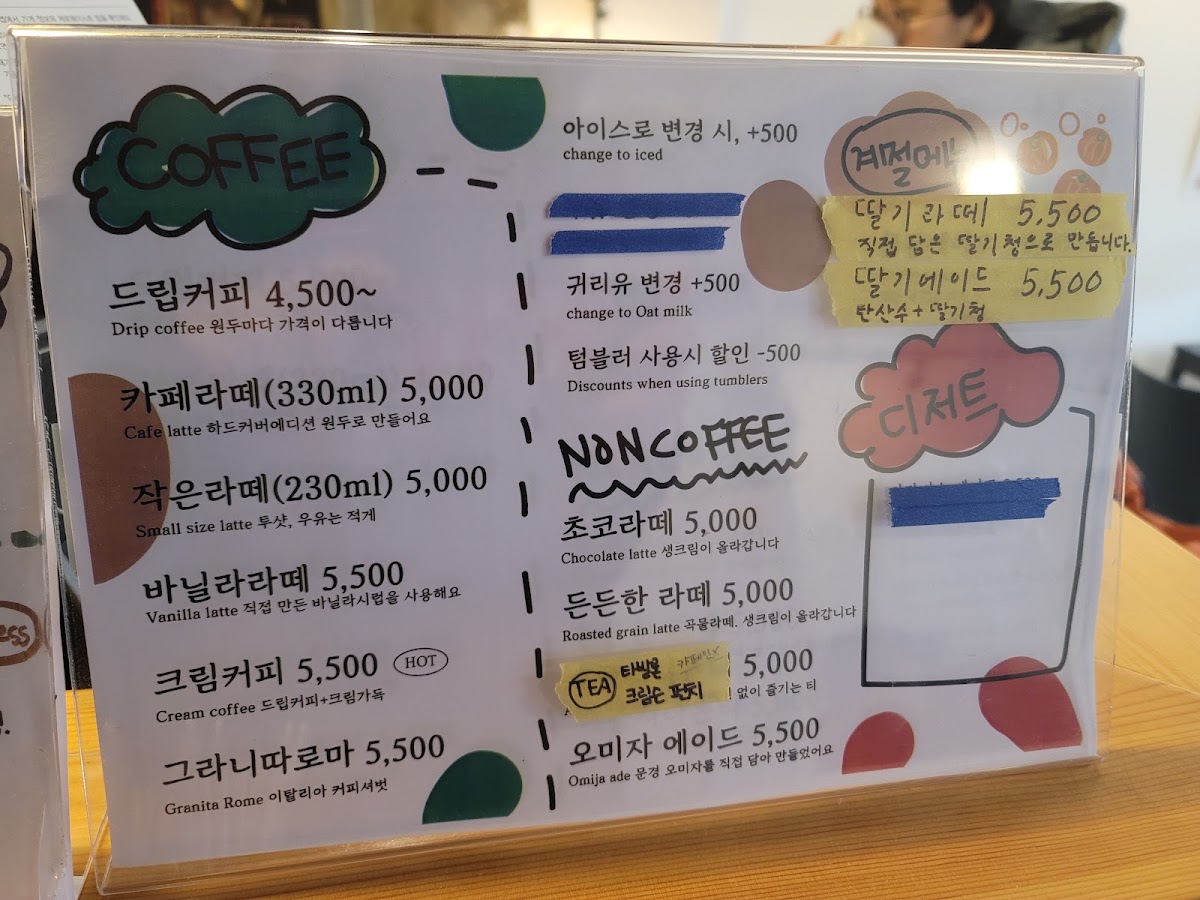 COFFEE
드립커피 4,500~
Drip coffee 원두마다 가격이 다릅니다
카페라떼(330ml) 5,000
Cafe latte 하드커버에디션 원두로 만들어요
작은라떼(230ml) 5,000
Small size latte 투샷, 우유는 적게
바닐라라떼 5,500
Vanilla latte 직접 만든 바닐라시럽을 사용해요
크림커피 5,500 HOT
Cream coffee 드립커피+크림가득
그라니따로마 5,500
Granita Rome 이탈리아 커피셔벗
아이스로 변경 시, +500
change to iced
귀리유 변경 +500
change to Oat milk
텀블러 사용시 할인 -500
Discounts when using tumblers
NON COFFEE
초코라떼 5,000
Chocolate latte 생크림이 올라갑니다
든든한 라떼 5,000
Roasted grain latte 곡물라떼. 생크림이 올라갑니다
TEA 타발론 카페인X 5,000
크림슨 펀치 없이 즐기는 티
오미자 에이드 5,500
Omija ade 문경 오미자를 직접 담아 만들었어요
계절메뉴
딸기라떼 5,500
직접 담은 딸기청으로 만듭니다.
딸기에이드 5,500
탄산수+딸기청
디저트